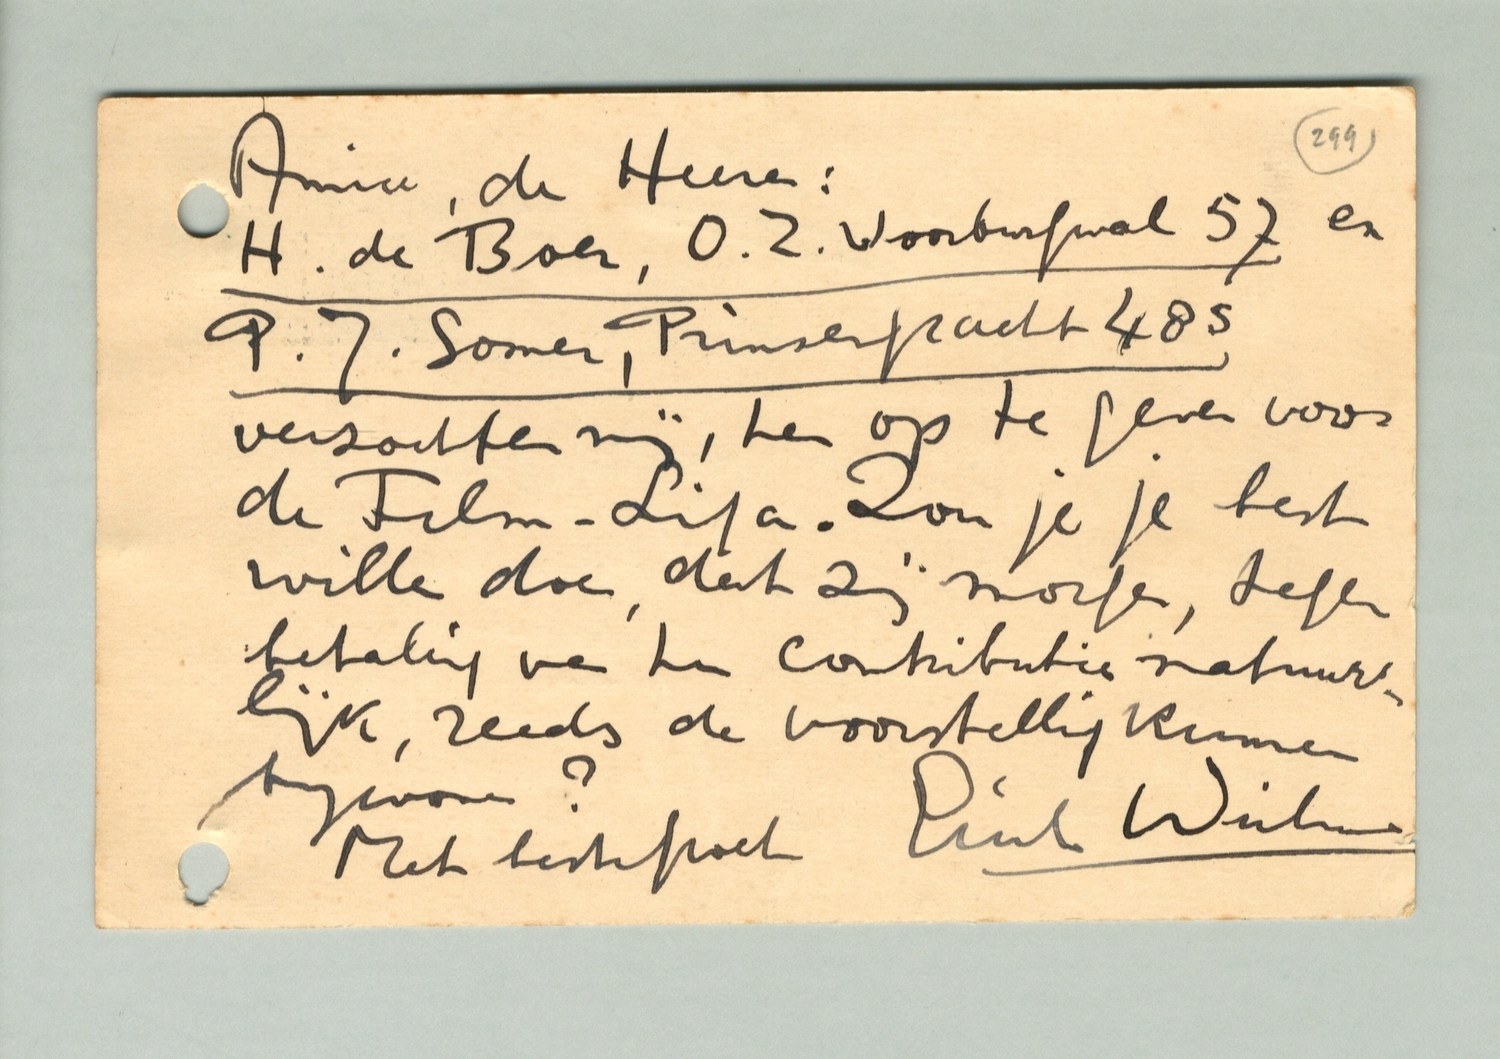 299
Amice, de Heeren:
H. de Boer, O.Z. Voorburgwal 57 en
P. J. Somer, Prinsengracht 485
verzochten mij, hen op te geven voor
de Film-Liga. Zou je je best
willen doen, dat zij morgen, tegen
betaling van hun contributie natuur-
lijk, reeds de voorstelling kunnen
bijwonen?
Met besten groet